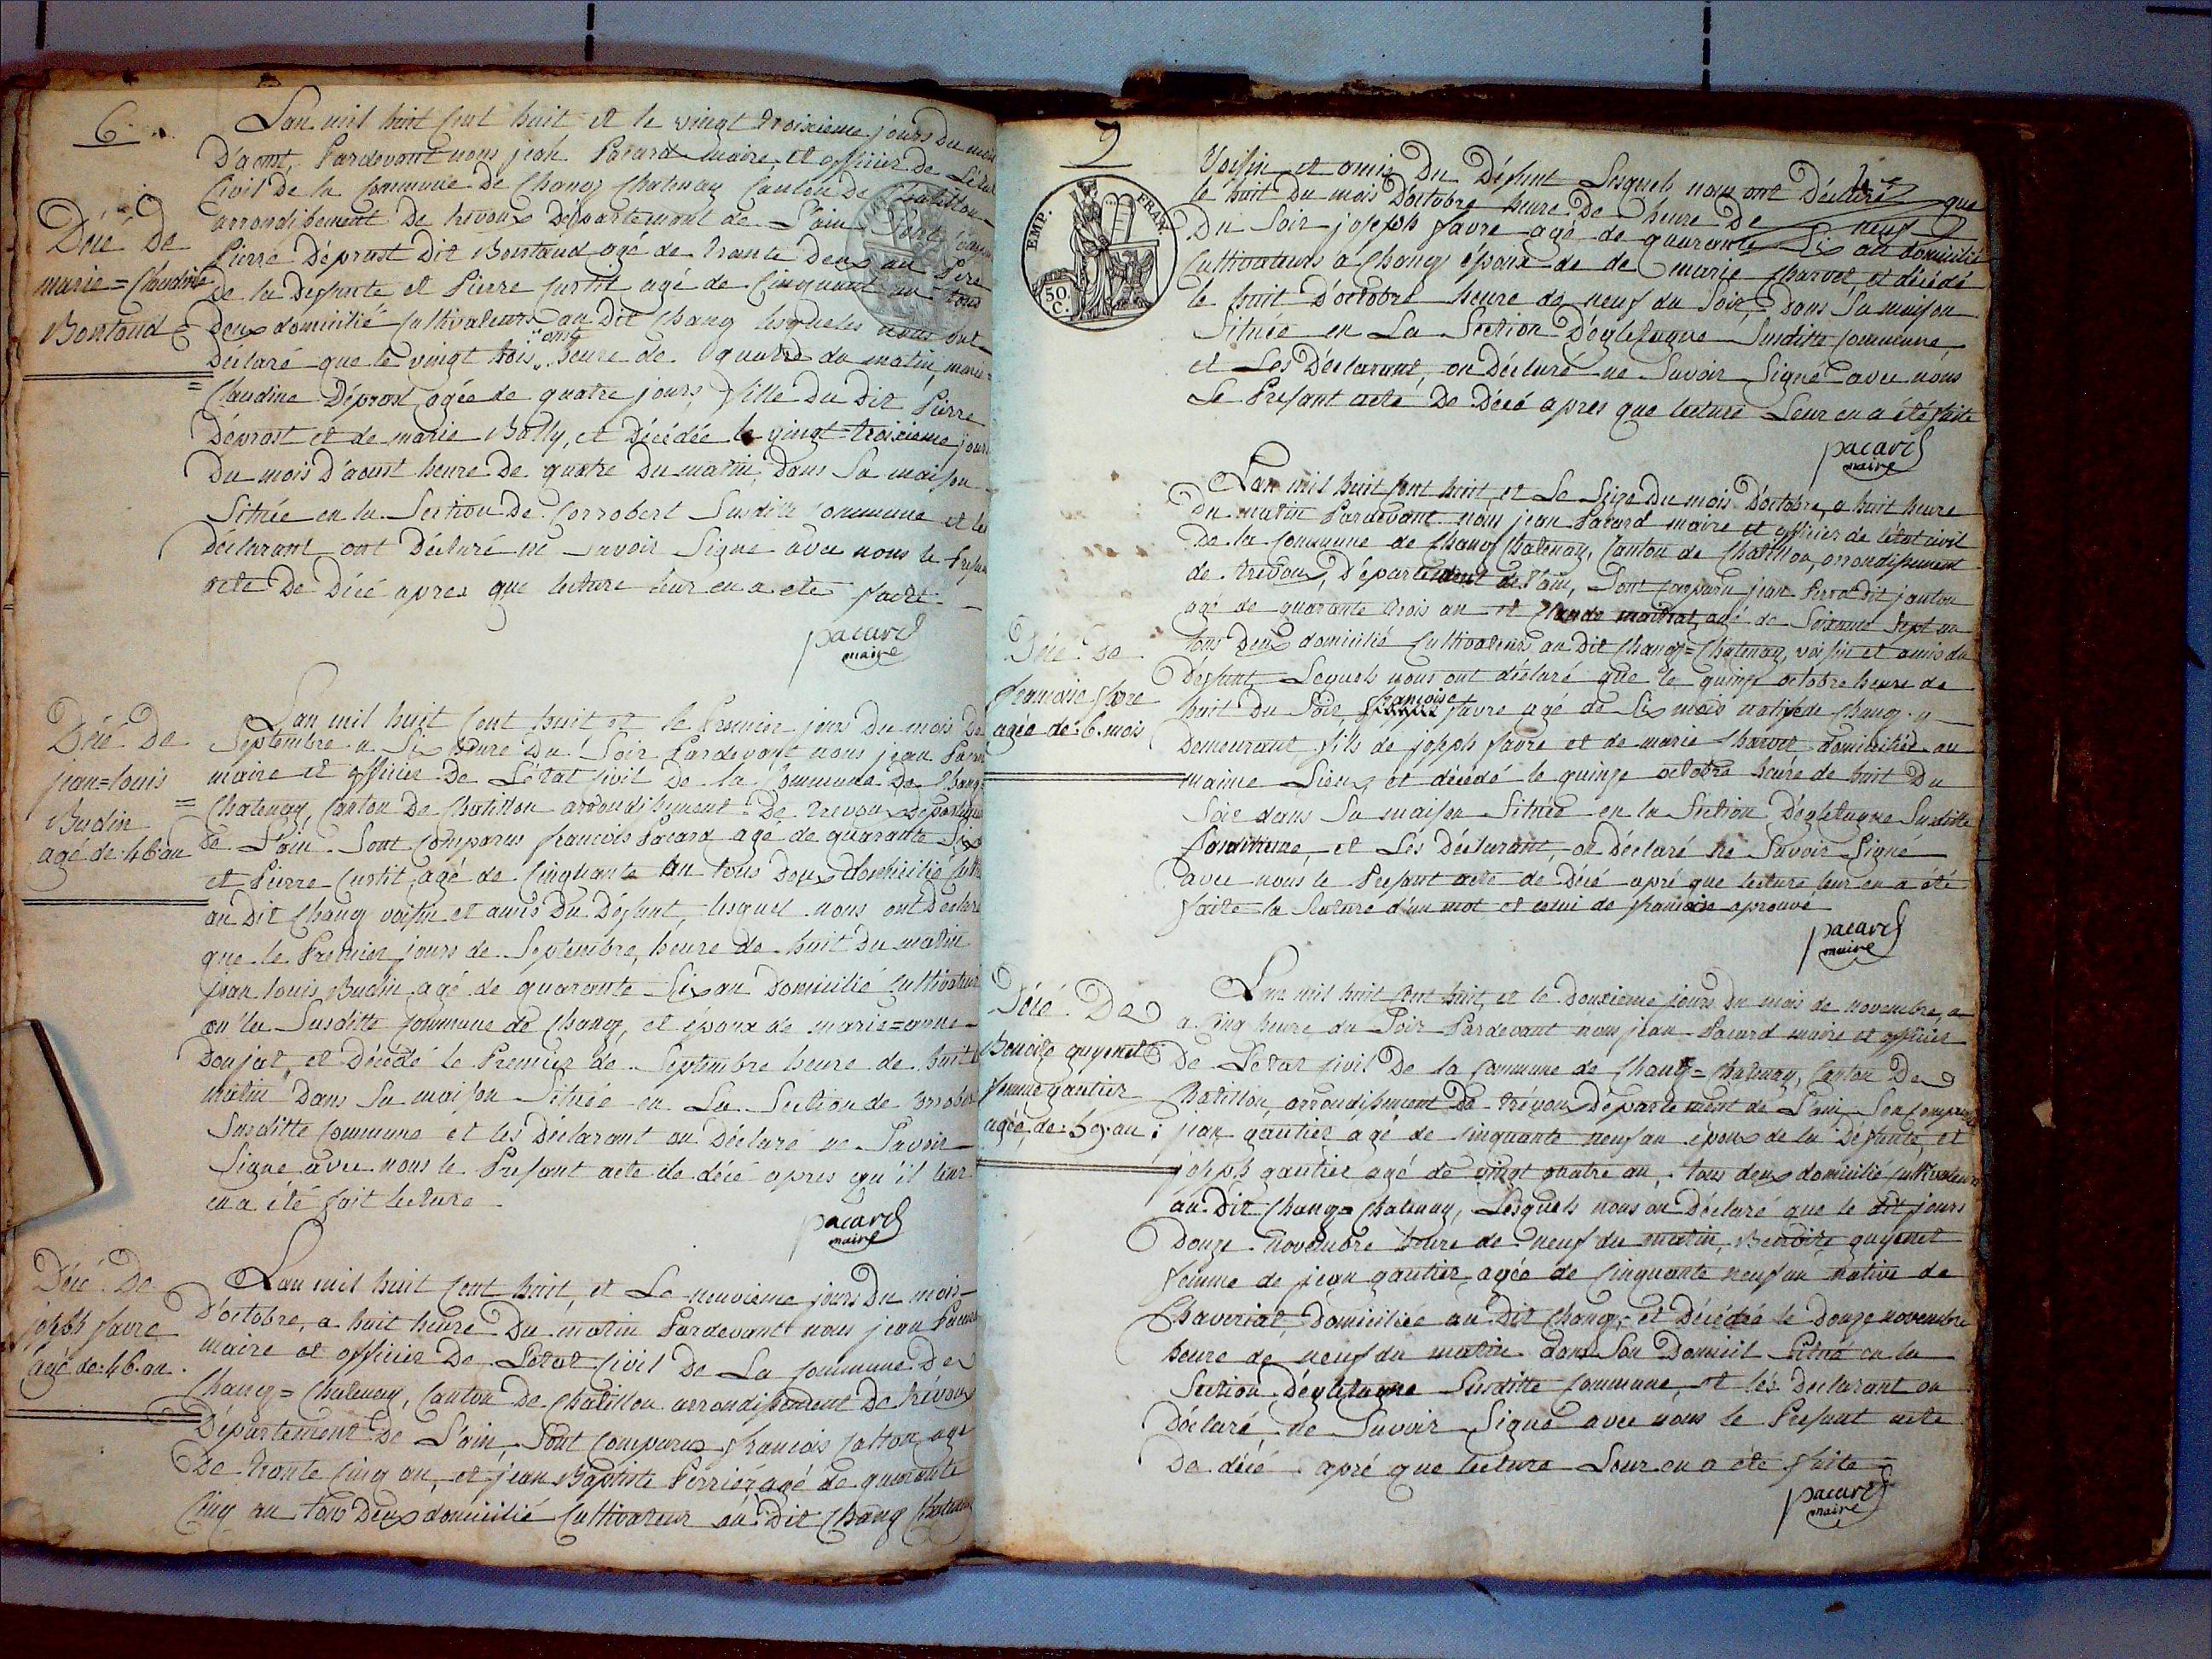 6
Lan mil huit cent huit et le vingt troisieme jours du mois
D'aout, Pardevant nous jean Pacard maire et officier de Létat
Civil De la Commune de Chanoz Chatenay Canton de Chatillon
arrondissement De trevoux Département de Lain Sont
Décé de
marie=Claudine
Boutaud
Pierre Déprost Dit Boutaud agé de trante Deux an Pere
De la Deffunte et Pierre Curtil agé de Cinquante an tous
Deux domicilié Cultivateurs au Dit Chanoz lesqueles nous ont
Déclaré que le vingt trois aout heure de quatre du matin, marie=
=Claudine Déprost, agée de quatre jours, fille Du Dit Pierre
Déprost et de marie Bolly, et Décédée le vingt=troisieme jours
Du mois D'aoust heure De quatre Du matin, Dans Sa maison
Située en la Section De Corrobert Susditte Commune et les
Déclarant ont Déclaré ne Savoir Signe avec nous le Presant
acte De Décé apres que lecture leur en a ete faite
pacard
maire
Décé De
jean=louis
Budin
agé de 46 an
Lan mil huit Cent huit, et le Premier jour Du mois De
Septembre a Six heure Du Soir Pardevant nous jean Pacard
maire et officier De Létat Civil De la Commune De Chanoz=
=Chatenay, Canton De Chatillon arrondissement De trevoux Département
De Lain Sont Comparus francois Pacard agé de quarante Six
et Pierre Curtil, agé de Cinquante an tous Deux domicilié
au Dit Chanoz voisin et amis Du Déffunt, lesquel nous ont Déclaré
que le Premier jours de Septembre, heure de huit Du matin
jean louis Budin agé de quarante Six an Domicilié Cultivateur
en la Susditte Commune de Chanoz, et époux de marie=anne
Donjat, et Décédé le Premier de Septembre heure de huit
matin Dans Sa maison Située en La Section de Corrobert
Susditte Commune et les Déclarant on Déclaré ne Savoir
Signe avec nous le Presant acte de décé apres qu'il leur
en a été fait lecture
pacard
maire
Décé De
joseph favre
agé de 46 an
Lan mil huit Cent huit, et Le neuvieme jours Du mois
D'octobre, a huit heure Du matin Pardevant nous jean Pacard
maire et officier De Létat Civil De La Commune De
Chanoz=Chatenay, Canton De Chatillon arrondissement De trévoux
Département De Lain, Sont Comparus francois Jalton, agé
De trante Cinq an, et jean Baptiste Perrier, agé de quarante
Cinq an tous Deux domicilié Cultivateur au Dit Chanoz Chatenay
7
EMP. FRAN.
50. C.
Voissin et amis Du Déffunt Lesquels nous ont Déclaré que
le huit Du mois D'octobre heure De heure De neuf
Du Soir joseph favre agé de quarante Six an domicilié
Cultivateurs a Chanoz époux de de marie Charvet, et décédé
le huit D'octobre heure de neuf du Soir, Dans Sa maison
Située en La Section D'egletagne Susditte Commune,
et Les Déclarant, on Déclaré ne Savoir Signé avec nous
Le Presant acte De Décé apres que lecture Leur en a été faite
pacard
maire
Décé De
francoise favre
agée de 6 mois
Lan mil huit Cent huit, et Le Seize Du mois D'octobre, a huit heure
Du matin Pardevant nous jean Pacard maire et officier de létat civil
De la Commune de Chanoz Chatenay, Canton de Chatillon, arrondissement
de trevoux, Département de Lain, Sont Comparu jean Perra dit janton
agé de quarante trois an et Claude maitrat, agé de Soixante Sept an
tous Deux domicilié Cultivateurs au Dit Chanoz=Chatenay, voisin et amis du
Déffunt, Lequels nous ont déclaré que le quinze octobre heure de
huit Du Soir, francoise favre agé de Six mois native de Chanoz y
Demeurant fils de joseph favre et de marie Charvet domiciliée au
maime Lieux, et décédé le quinze octobre heure de huit Du
Soir dans Sa maison Située en la Section D'egletagne Susditte
Commune, et Lés Déclarant, on Déclaré ne Savoir Signe
avec nous le Presant acte de Décé apré que lecture leur en a été
faite la Rature d'un mot et celui de francoise aprouvé
pacard
maire
Décé De
Benoite guyenet
femme gautier
agée de 59 an
Lan mil huit Cent huit, et le Douzieme jours Du mois de novembre, a
a Cinq heure du Soir Pardevant nous jean Pacard maire et officier
De Létat Civil De la Commune de Chanoz=Chatenay, Canton De
Chatillon, arrondissement De trévoux Département de Lain, Son Comparus
jean gautier agé de Cinquante neuf an époux de la Déffunte, et
joseph gautier agé de vingt quatre an, tous deux domicilié Cultivateurs
au Dit Chanoz=Chatenay, Lesquels nous on Déclaré que le dit jours
Douze novembre heure de neuf du matin, Benoite guyenet
femme de jean gautier, agée de Cinquante neuf an native de
Chaveriat, Domiciliée au Dit Chanoz, et Décédée le Douze novembre
heure de neuf du matin dans Son Domicil Situé en la
Section D'egletagne Susditte Commune, et lés Declarant on
Déclaré ne Savoir Signé avec nous le Presant acte
De décé apré que lecture Leur en a été faite
pacard
maire